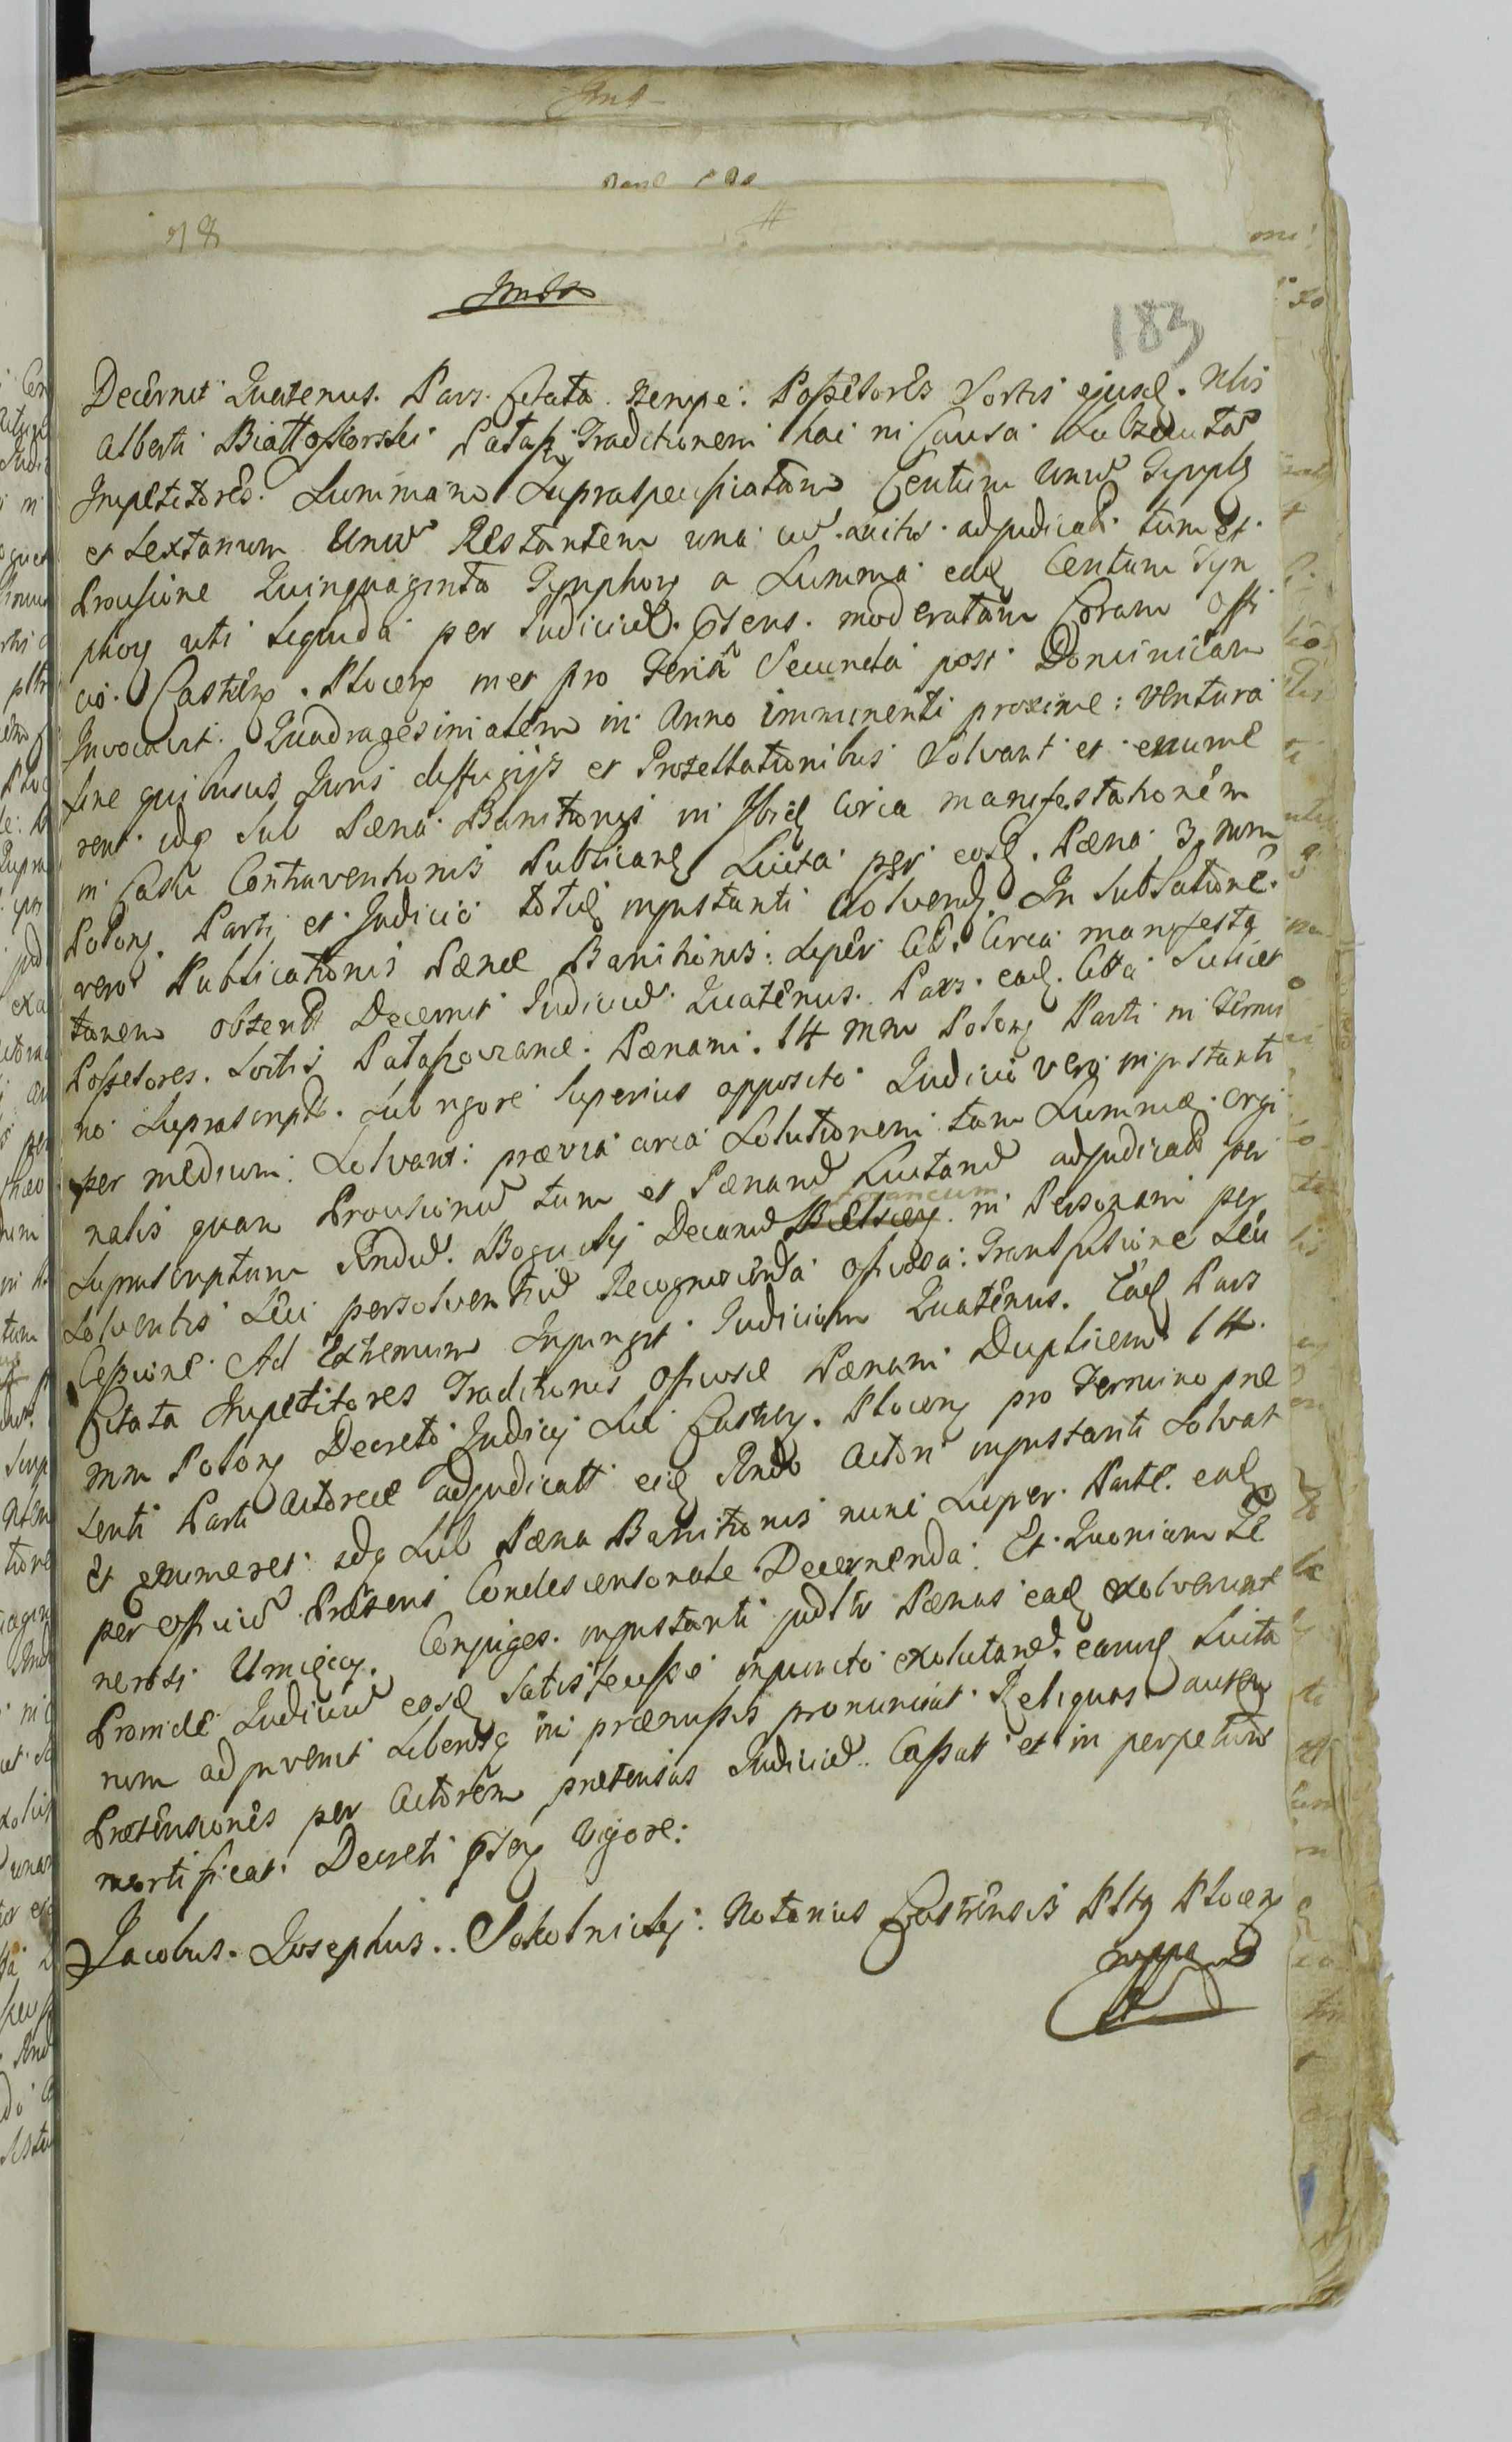 78
183
Decernit Quatenus. Pars. Citata. nempe: Possessores Sortis ejusd. Nlis
Alberti Białłoskorski Patasz Traditionem hac in Causa
Impetitores. Summam Supraspecificatam Centum Unum Tymph
et Sextanum Unum Restantem una cum adjudicat. tum et
Provisione Quinquaginta Tymphor a Summa ead Centum Tym
phor uti liquida per Judicium. pntens. moderatam Coram Offi
cio. Castren. Plocen met pro Feria Secunda post Dominicam
Invocavit. Quadragesimalem in Anno imminenti proxime: ventura
sine quibusvis Juris diffugijs et Protestationibus Solvant et enume
rent idq Sub Pæna Banitionis in circa manifestationem
in Casu Contraventionis Publicand Luita per eosd. Pæna 3. mm
Polong. Parti et Judicio totid injustanti Solvend. In Subsecutione.
vero Publicationis Pænæ Banitionis. Super Circa manifesta
tionem obtent Decernit Judicium Quatenus. Pars. ead. Citta Scilicet
Possesores. Sortis Pataszowianæ. Pænam. 14 mm Polong Parti in Termi
no Suprascript. Sub rigore Superius apposito Judicio vero injustanti
per medium. Solvant. prævia circa Solutionem tam Summæ. orgi
nalis quam Provisionum tum et Pænarum Luitarum adjudicat per
Suprascriptum Rndum. Bogucky Decanum Bielscen in Personam per
Solventis Seu persolventium Recognoscenda officiosa: Transfusione Seu
Cessione Ad Extremum Injungit Judicium Quatenus. Ead Pars
Citata Impetitores Traditionis officiosæ Pænam Duplicem 14.
mm Polong Decreto Judicij Sui Castren. Plocen pro Termino præ
senti Parti Actoreæ adjudicatt eid Rndo Actori injustanti Solvat
Et enumeret idq Sub Pæna Banitionis nunc Super Parte. ead
per officium Præsens Condescensoriale Decernenda. Et Quoniam Ge
nerosi Umięcy. Conjuges. injustanti judtr Pænas ead exolverunt
Proinde Judicium eosd Satisfecisse in puncto exolutarum. earund Luita
rum adjuvenit Liberosq in præmissis pronunciat Reliquas autem
Prætensiones per Actorem prætensas Judicium. Cassat et in perpetuum
mortificat Decreti pnten Vigore:
Jacobus. Josephus.. Sokolnicky: Notarius Castrensis Pltg Plocen
mppa